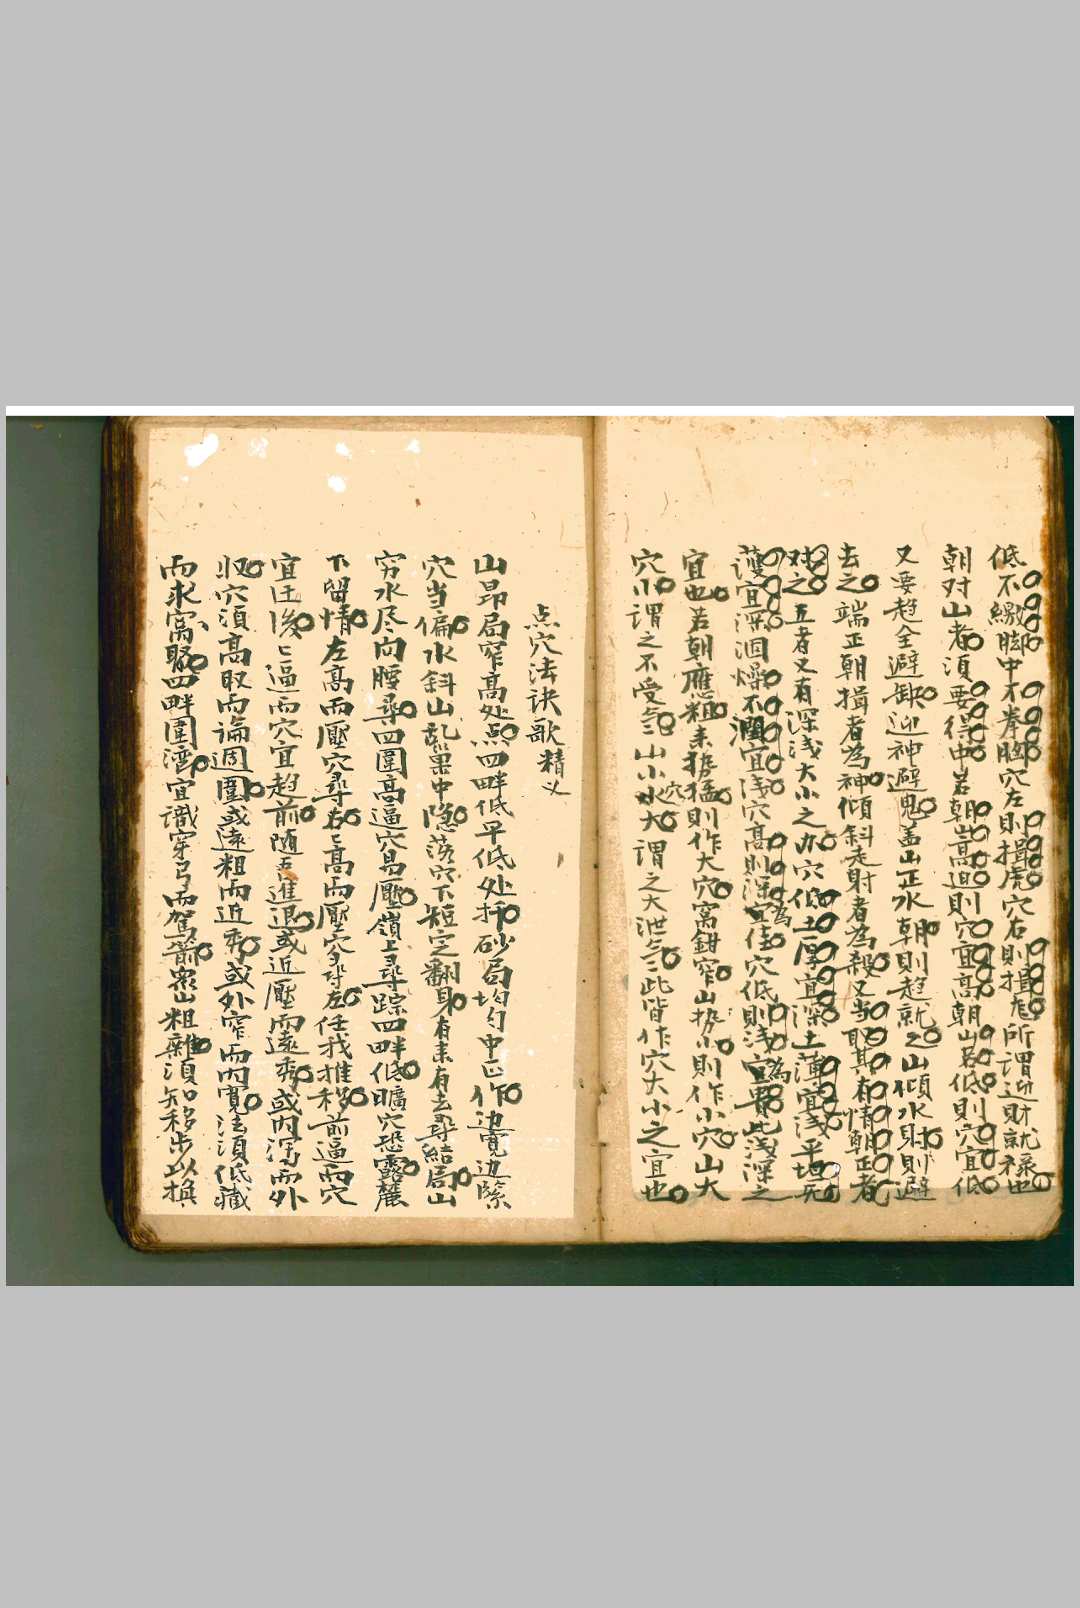 低不繳脚中不拳胸穴左則揖虎穴右則揖左所謂迎財就祿也
朝对山者須要得中若朝嵩迫則穴宜高朝山若低則穴宜低
又要趋全避缺迎神避鬼盖山正水朝則趋就之山傾水射則避
去之端正朝揖者為神傾斜走射者為殺又当取其有情朝正者
对之五者又有深浅大小之办穴低土厚宜深土薄宜浅平地无
護宜深涸燥不潤宜浅穴高則深為佳穴低則浅為貴此浅深之
宜也若朝應粗来勢猛則作大穴窩鉗窄山势小則作小穴山大
穴小謂之不受氣山小穴大謂之大泄氣此皆作穴大小之宜也
点穴法诀歌精义
山昂局窄高处点四畔低平低处扦砂局均匀中正作边寬边緊
穴当偏水斜山乱巢中隐荡穴下短定翻身有来有去尋結局山
穷水尽向腰尋四圍高逼穴易壓嶺上尋踪四畔低曠穴恐露麓
下留情左高而壓穴尋右右高而壓穴尋左任我推移前逼而穴
宜迁後後逼而穴宜趋前随吾進退或近壓而遠秀或内深而外
収穴須高取而論週圍或遠粗而近秀或外窄而内寛法須低藏
而求窩聚四畔圍湾宜識穿弓而駕箭衆山粗雜須知移步以换